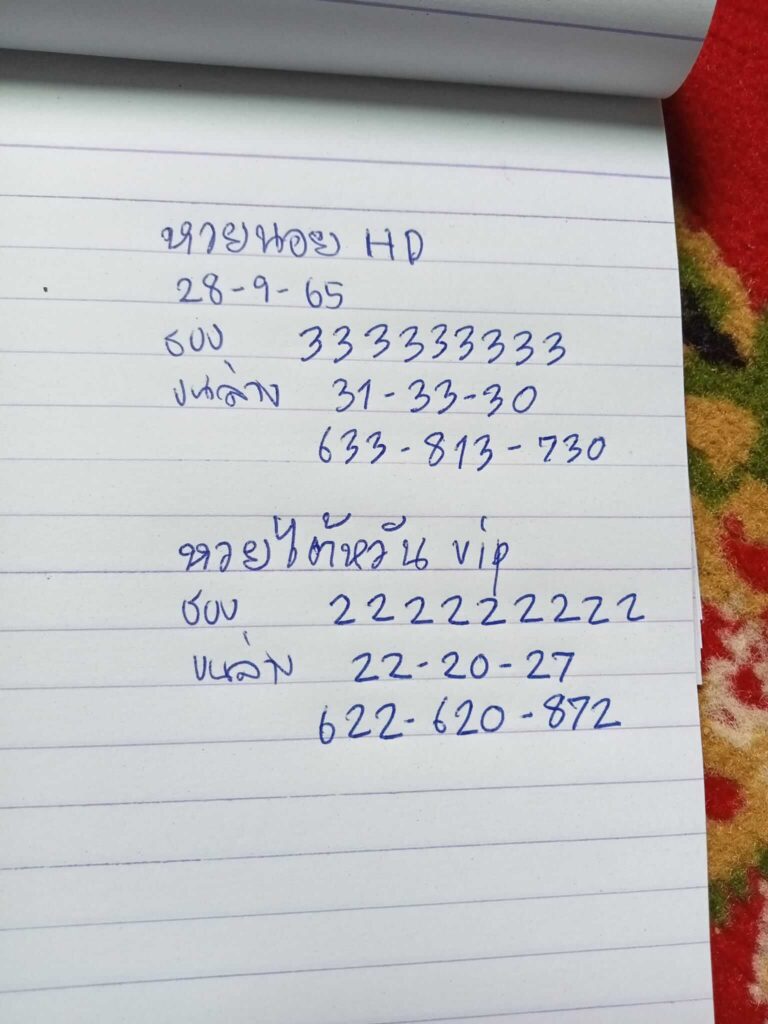 หวยนอย HD
28-9-65
รอง 333333333
บนล่าง 31-33-30
633-813-730
หวยไต้หวัน vip
รอง 222222222
บนล่าง 22-20-27
622-620-872